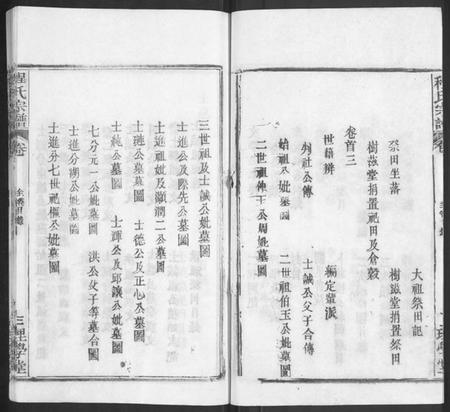 程氏宗譜
卷
大祖祭田記
祭田坐落
樹滋堂捐置祭田
樹滋堂捐置祀田及倉穀
卷首三
世籍辨
編定輩派
列祖公傳
士誠公父子合傳
始祖公妣墓圖
二世祖伯玉公妣墓圖
二世祖仲士公周妣墓圖
三世祖及士誠公妣墓圖
士進公及際先公墓圖
士進祖妣及顯潤二公墓圖
士璉公墓圖
士德公及正心公墓圖
士純公墓圖
士譚公及邱孺公妣墓圖
七分元一公妣墓圖
洪公父子等墓合圖
士進分湖公妣墓圖
士進分七世祀樞公妣墓圖
程氏宗譜
卷
全譜目錄
三
理學堂